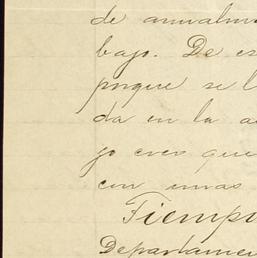 de anualme
bajo. De es
porque se l
da en la a
jo creo que
con unas
Tiemp
Departamen